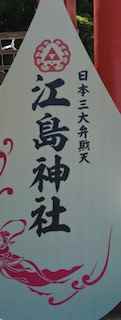 日本三大弁財天
江島神社